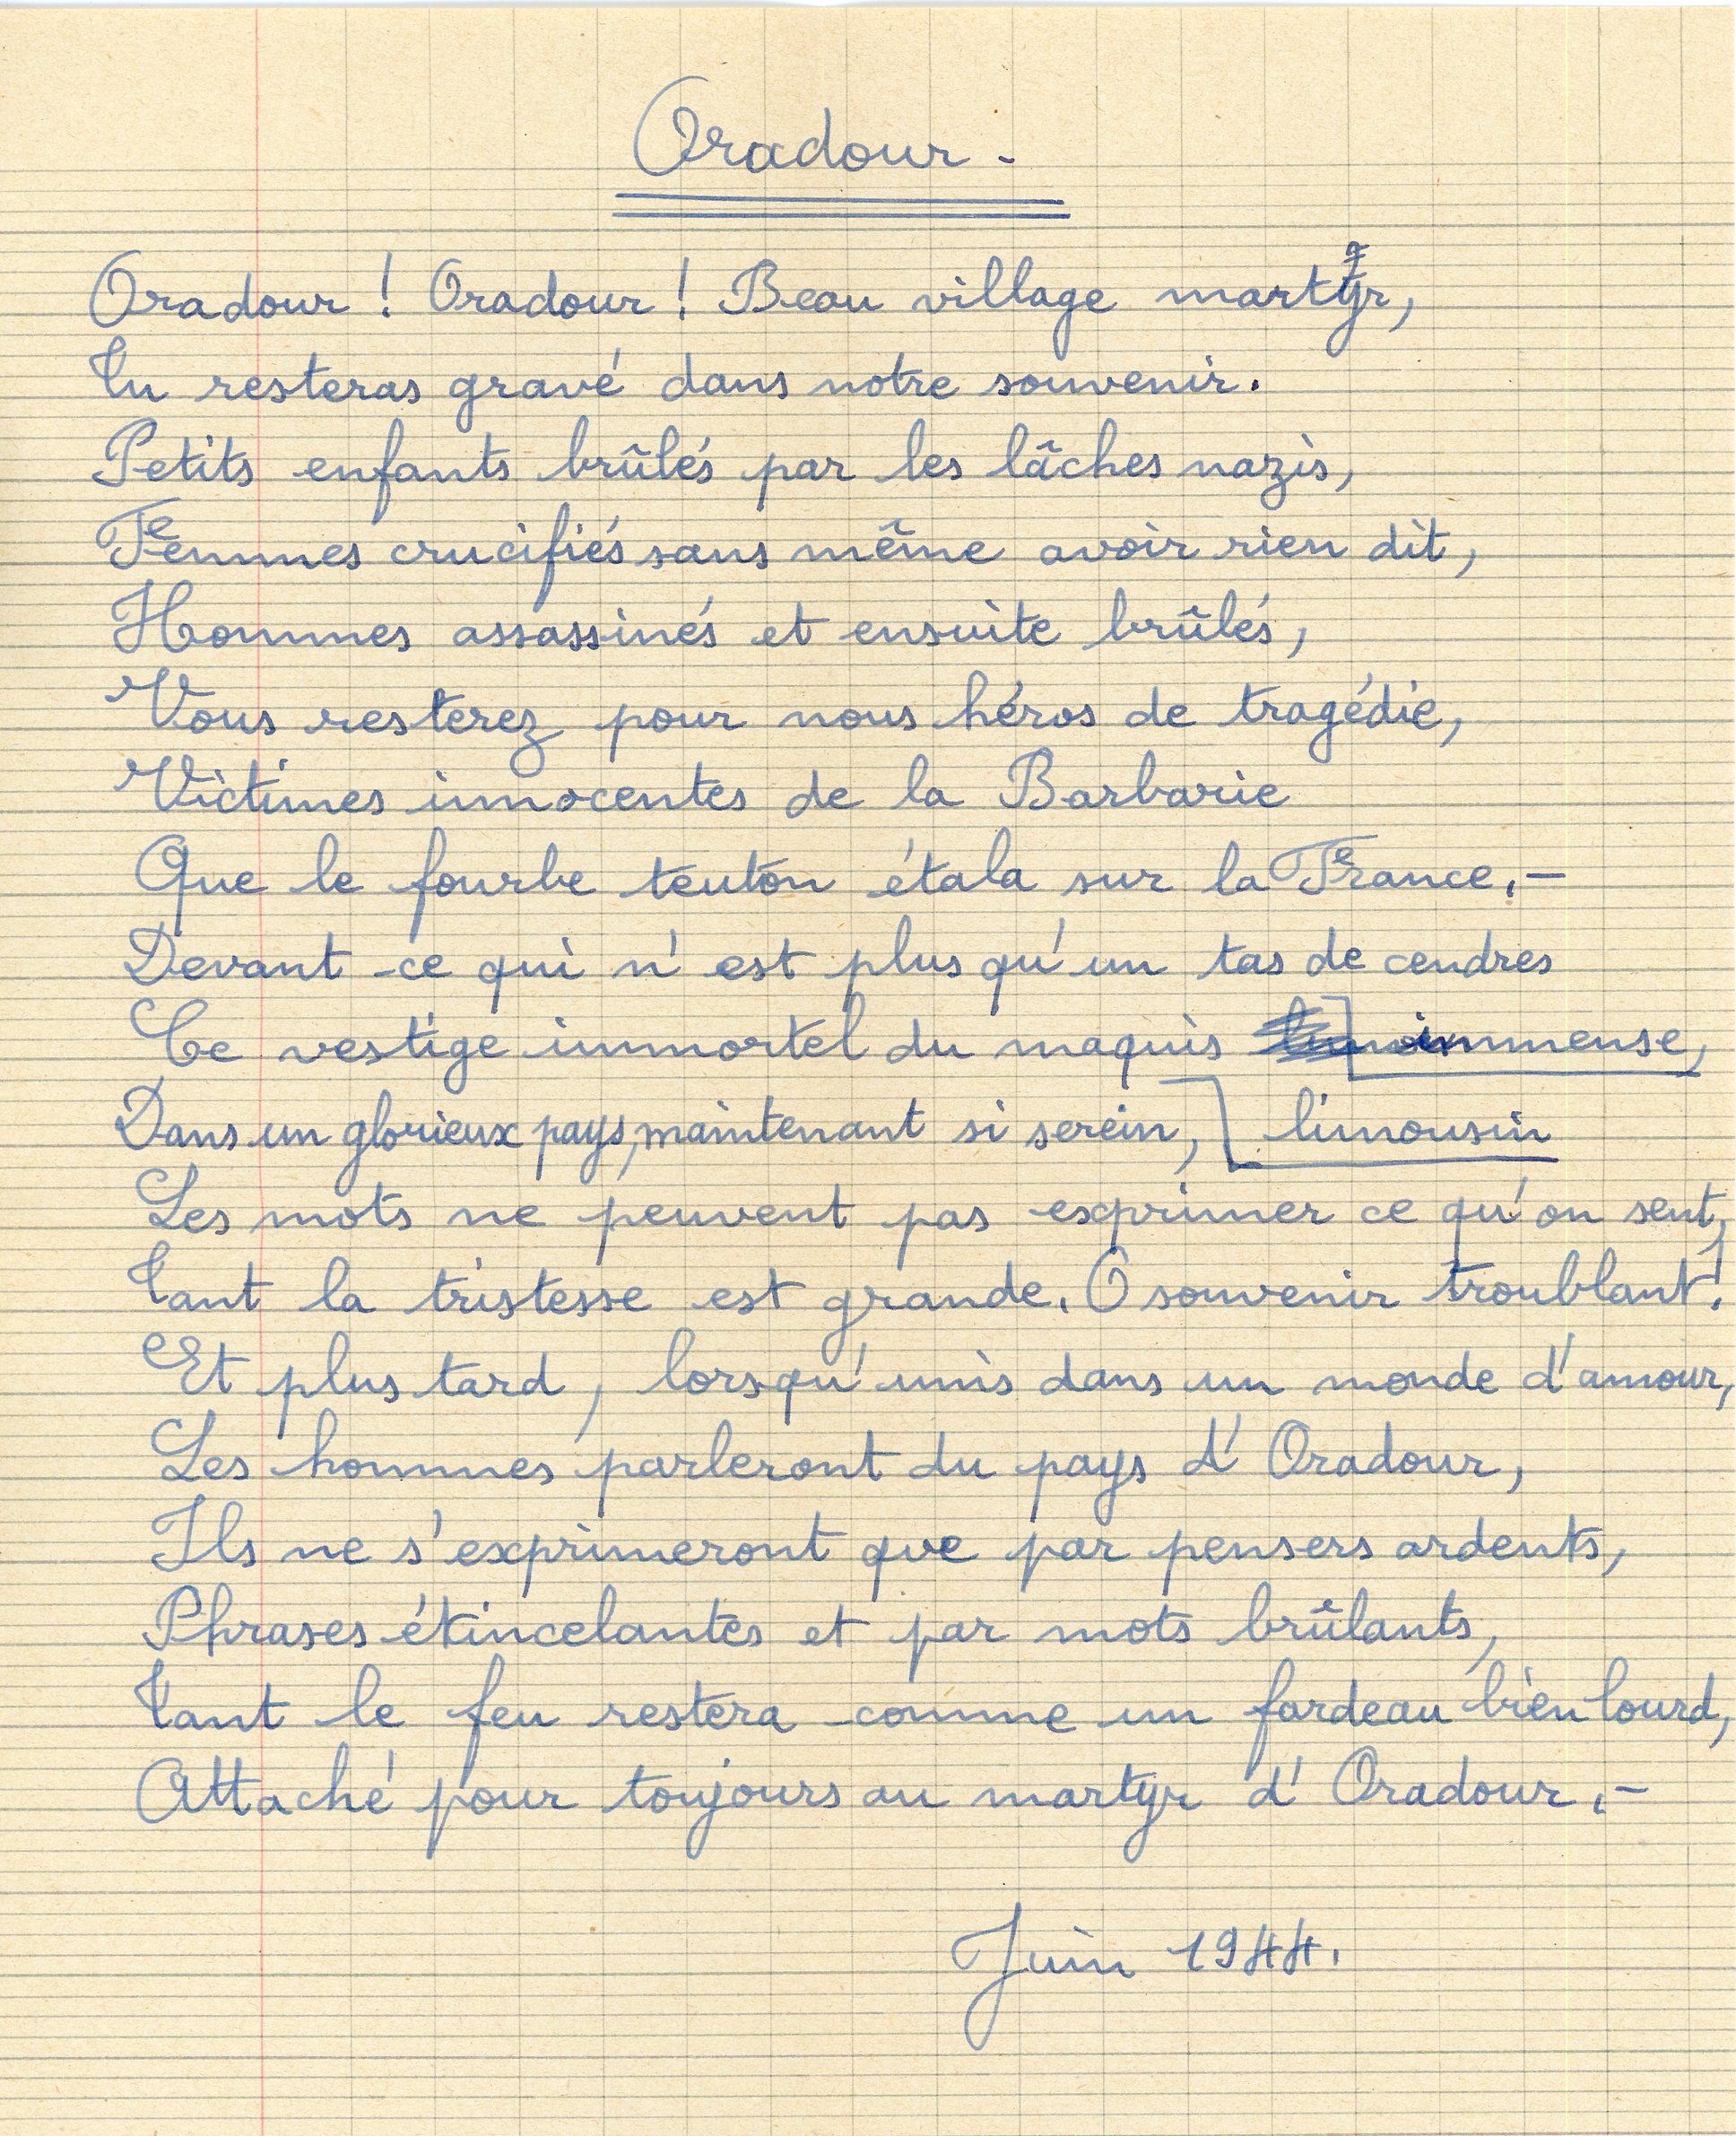 Oradour -
Oradour ! Oradour ! Beau village martyr,
Tu resteras gravé dans notre souvenir.
Petits enfants brûlés par les lâches nazis,
Femmes crucifiés sans même avoir rien dit,
Hommes assassinés et ensuite brûlés,
Vous resterez pour nous héros de tragédie,
Victimes innocentes de la Barbarie
Que le fourbe teuton étala sur la France.-
Devant ce qui n'est plus qu'un tas de cendres
Ce vestige immortel du maquis immense,
Dans un glorieux pays, maintenant si serein, limousin
Les mots ne peuvent pas exprimer ce qu'on sent,
Tant la tristesse est grande. O souvenir troublant !
Et plus tard, lorsqu'unis dans un monde d'amour,
Les hommes parleront du pays d'Oradour,
Ils ne s'exprimeront que par pensers ardents,
Phrases étincelantes et par mots brûlants,
Tant le feu restera comme un fardeau bien lourd,
Attaché pour toujours au martyr d'Oradour.-
Juin 1944.